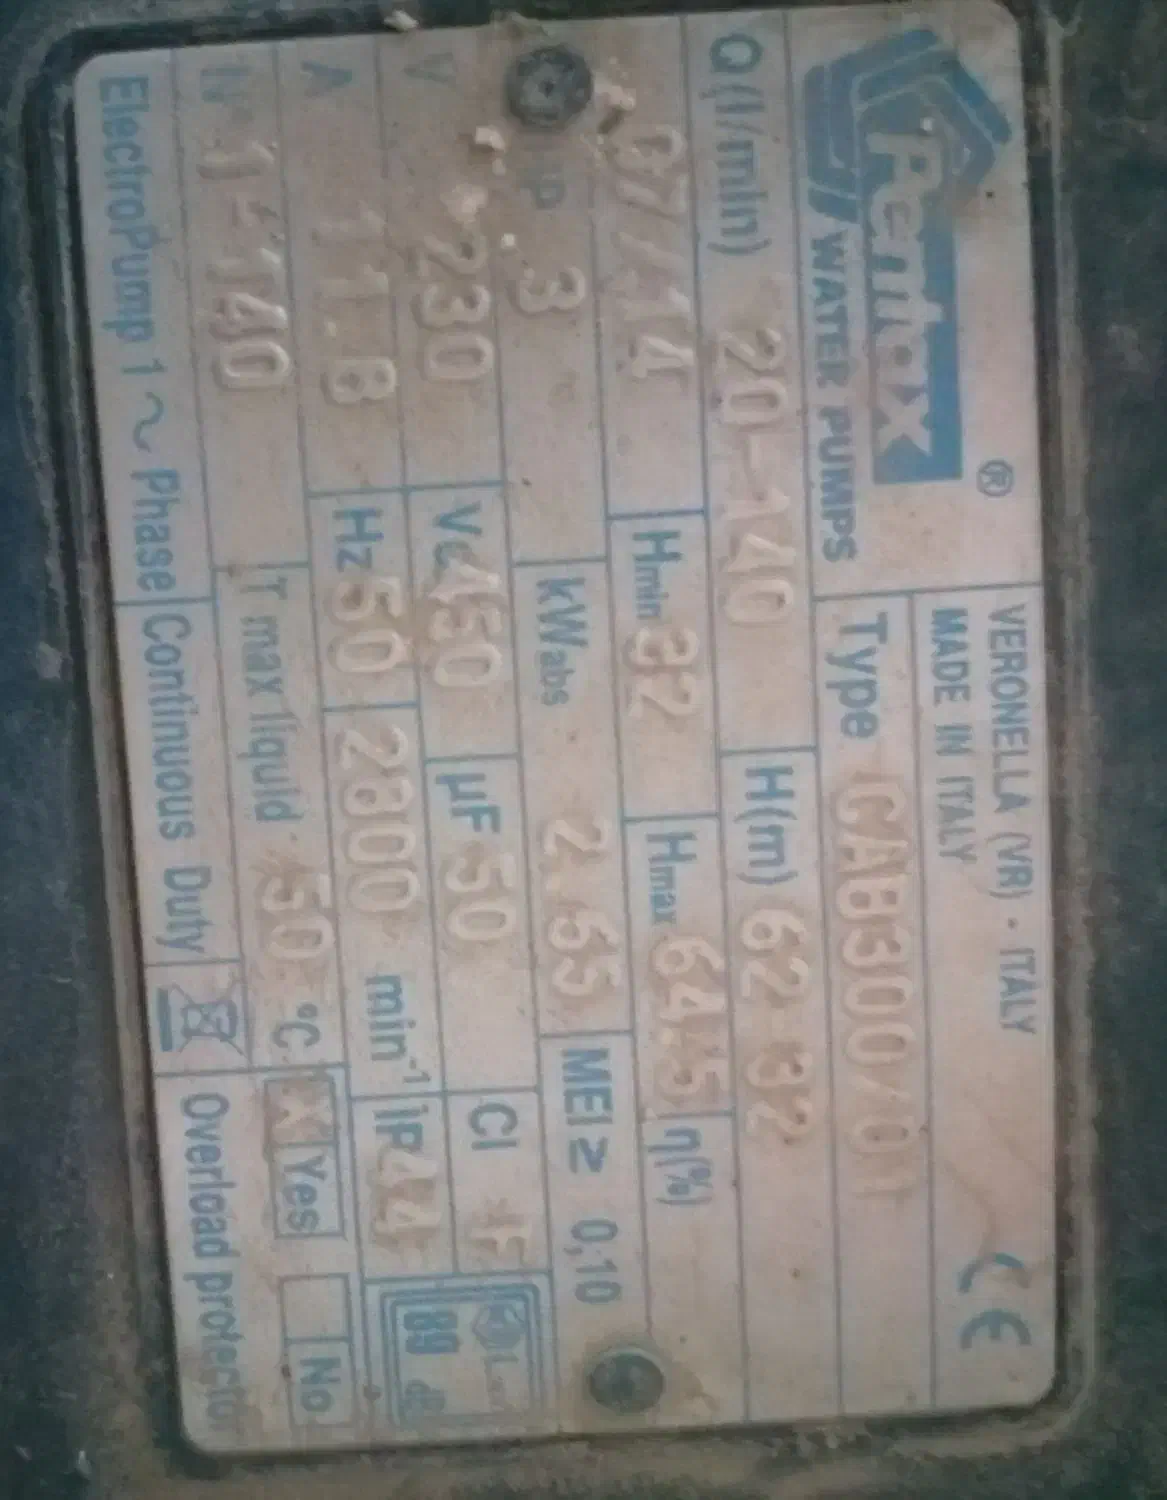 Pentax ®
WATER PUMPS
VERONELLA (VR) - ITALY
MADE IN ITALY
CE
Type CAB300/01
Q(l/min) 20-140 H(m) 62 32
07/14 Hmin 32 Hmax 64.5 η(%)
HP 3 kWabs 2.65 MEI ≥ 0,10
V 230 Vc 450 µF 50 Cl F
A 11.8 Hz 50 2800 min⁻¹ IP44
N° 1-140 T max liquid 50 °C X Yes No
89 dB
ElectroPump 1 ~ Phase Continuous Duty Overload protector